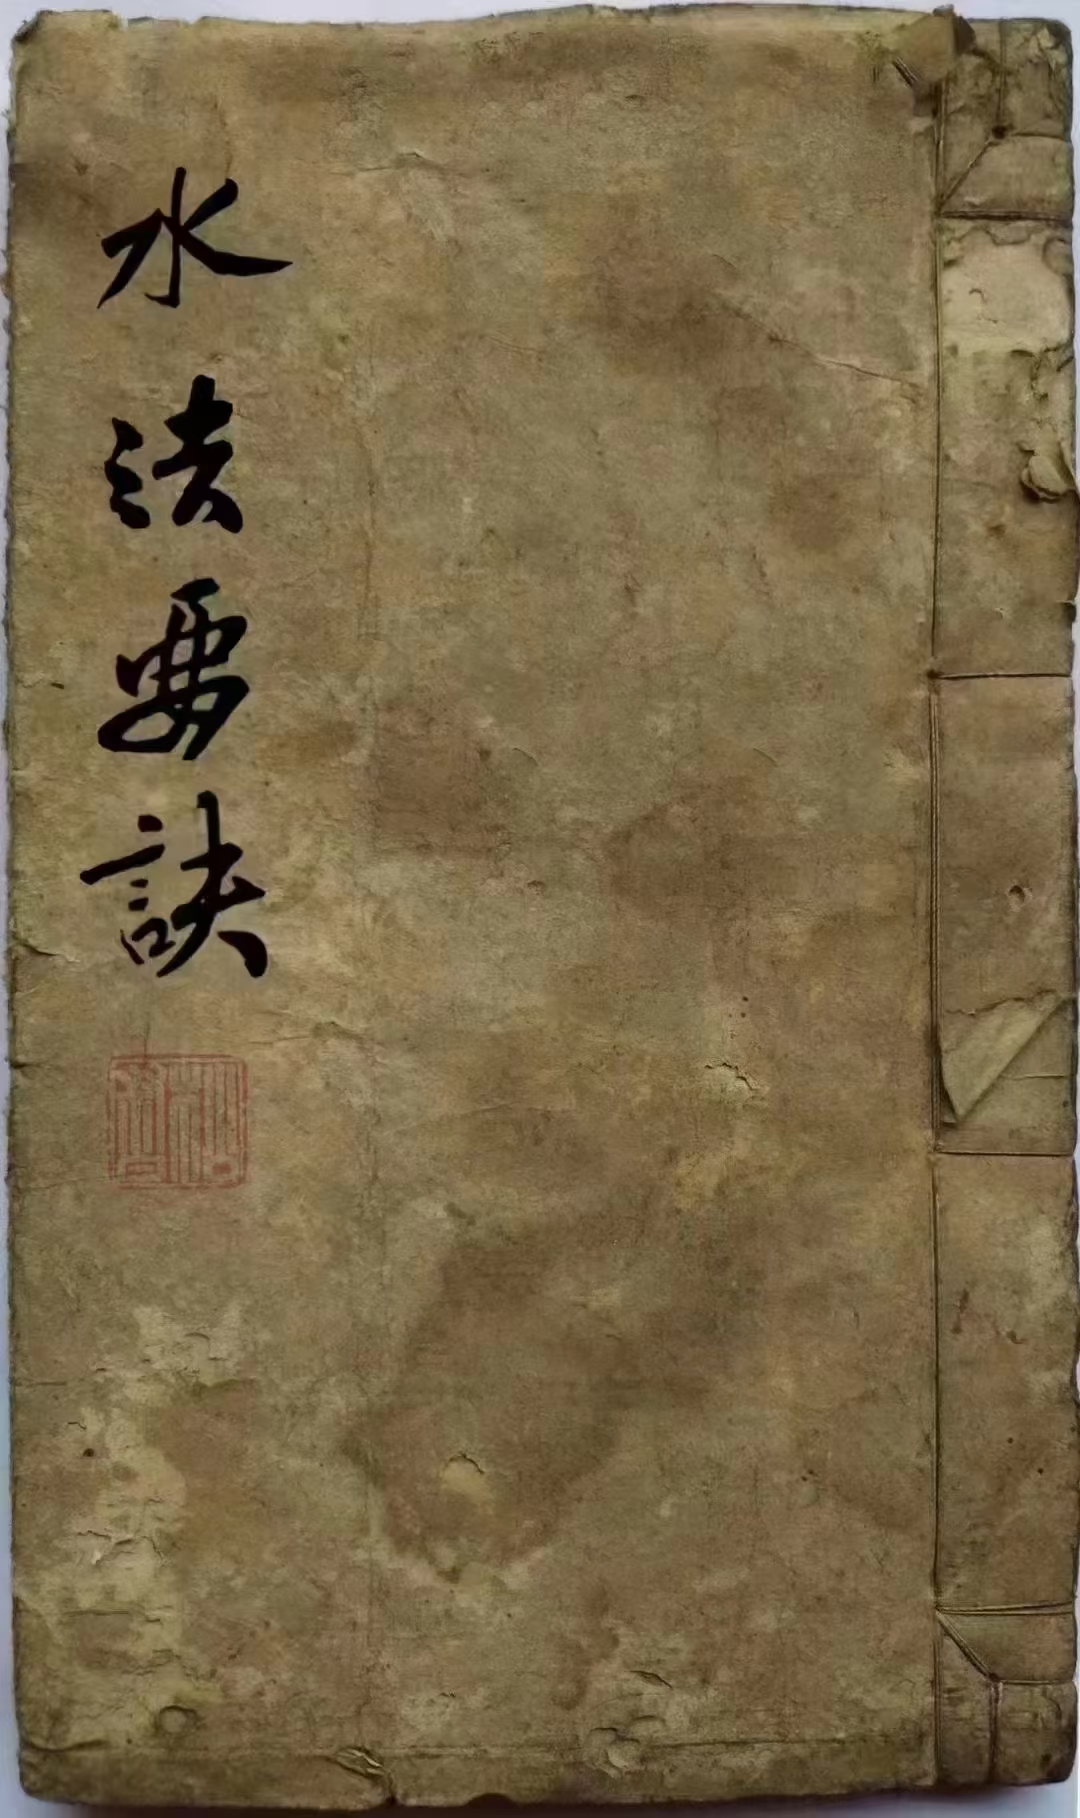 水法要訣